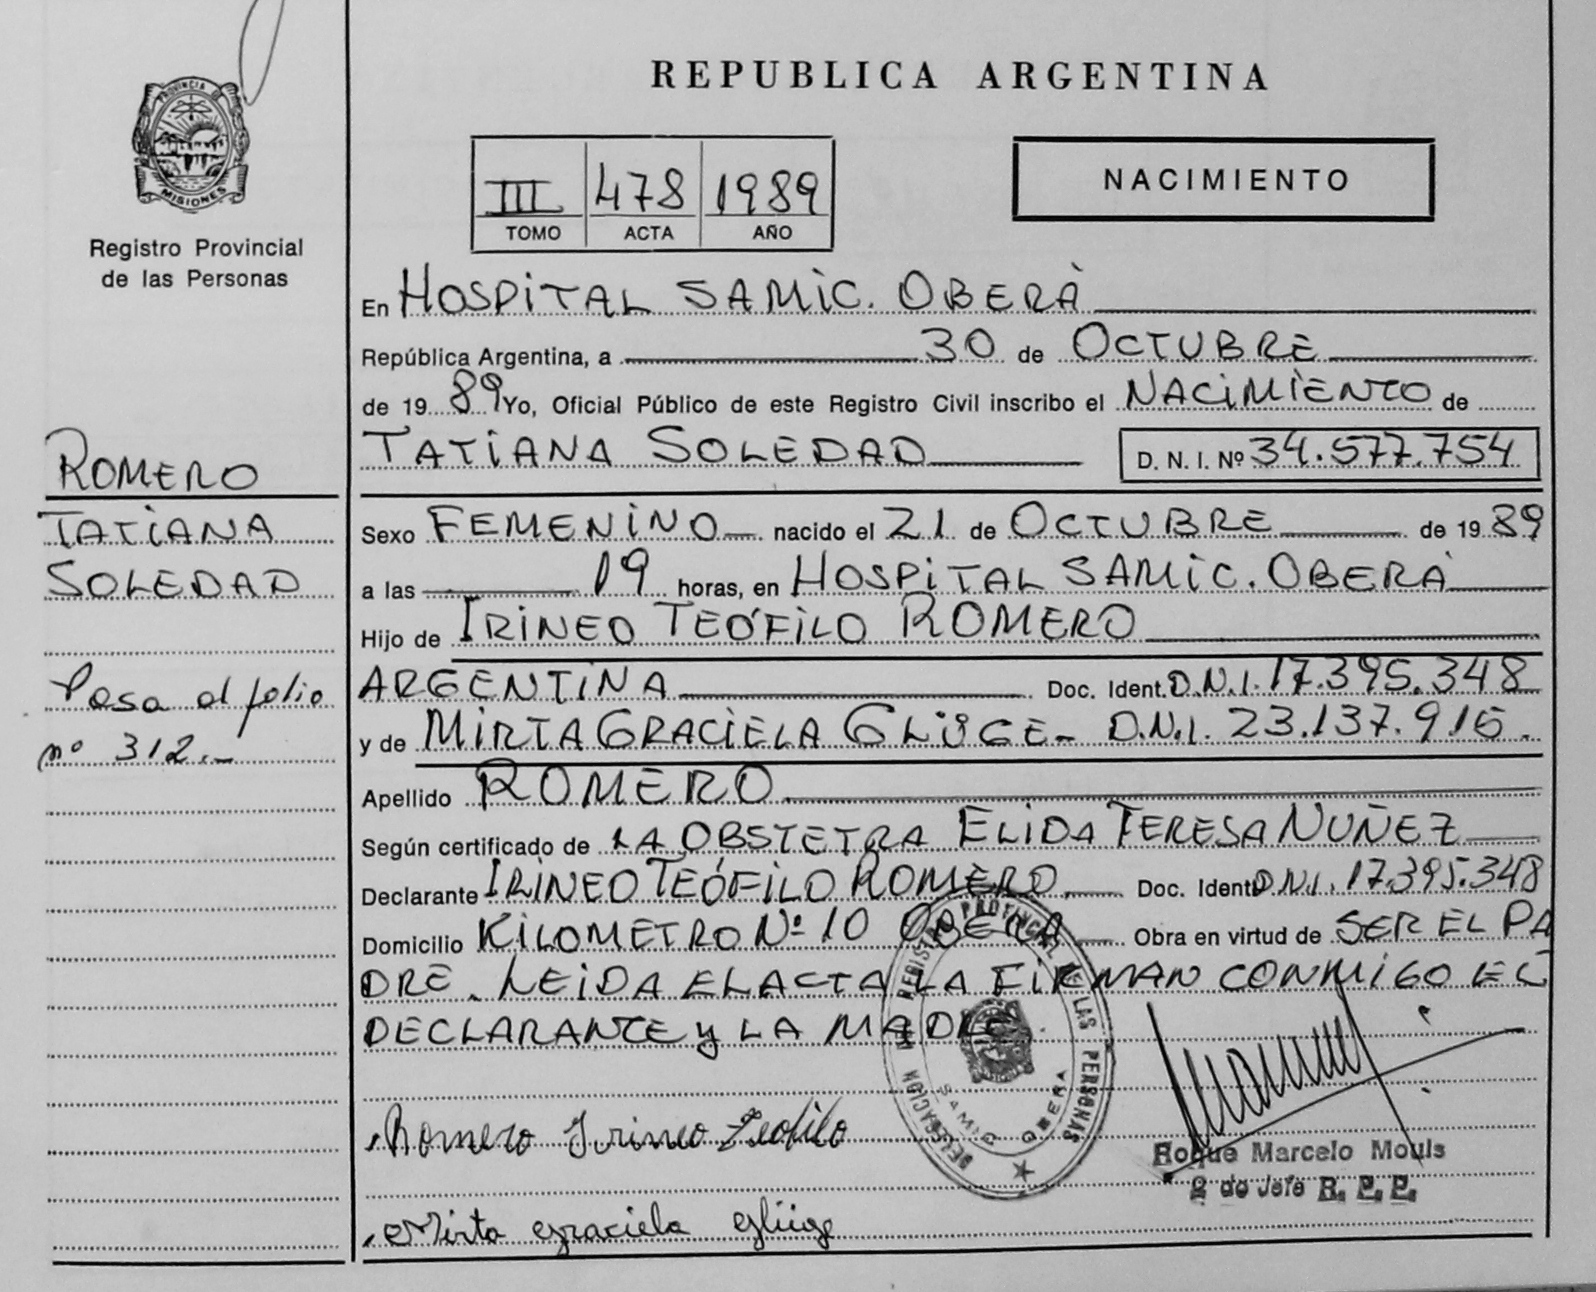 REPUBLICA ARGENTINA
PROVINCIA DE MISIONES
Registro Provincial
de las Personas
III 478 1989
TOMO ACTA AÑO
NACIMIENTO
En HOSPITAL SAMIC. OBERÀ
República Argentina, a 30 de OCTUBRE
de 19 89 Yo, Oficial Público de este Registro Civil inscribo el NACIMIENTO de
TATIANA SOLEDAD D. N. I. Nº 34.577.754
ROMERO
TATIANA
SOLEDAD
Pasa al folio
nº 312.-
Sexo FEMENINO nacido el 21 de OCTUBRE de 19 89
a las 19 horas, en HOSPITAL SAMIC. OBERA
Hijo de IRINEO TEÓFILO ROMERO
ARGENTINA Doc. Ident. D.N.I. 17.395.348
y de MIRTA GRACIELA GLÜGE- D.N.I. 23.137.916.
Apellido ROMERO
Según certificado de LA OBSTETRA ELIDA TERESA NUÑEZ
Declarante IRINEO TEÓFILO ROMERO Doc. Ident. D.N.I. 17.395.348
Domicilio KILOMETRO Nº 10 OBERA Obra en virtud de SER EL PA
DRE. LEIDA EL ACTA LA FIRMAN CONMIGO EL
DECLARANTE y LA MADRE.
DELEGACION REGISTRO PROVINCIAL DE LAS PERSONAS
SAMIC OBERA
Romero Irineo Teofilo
Roque Marcelo Mouls
2 do Jefe R. P. P.
Mirta Graciela Glüge